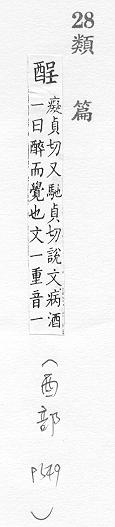 28
類篇
酲
癡貞切又馳貞切說文病酒
一曰醉而覺也文一重音一
(酉部 P549)